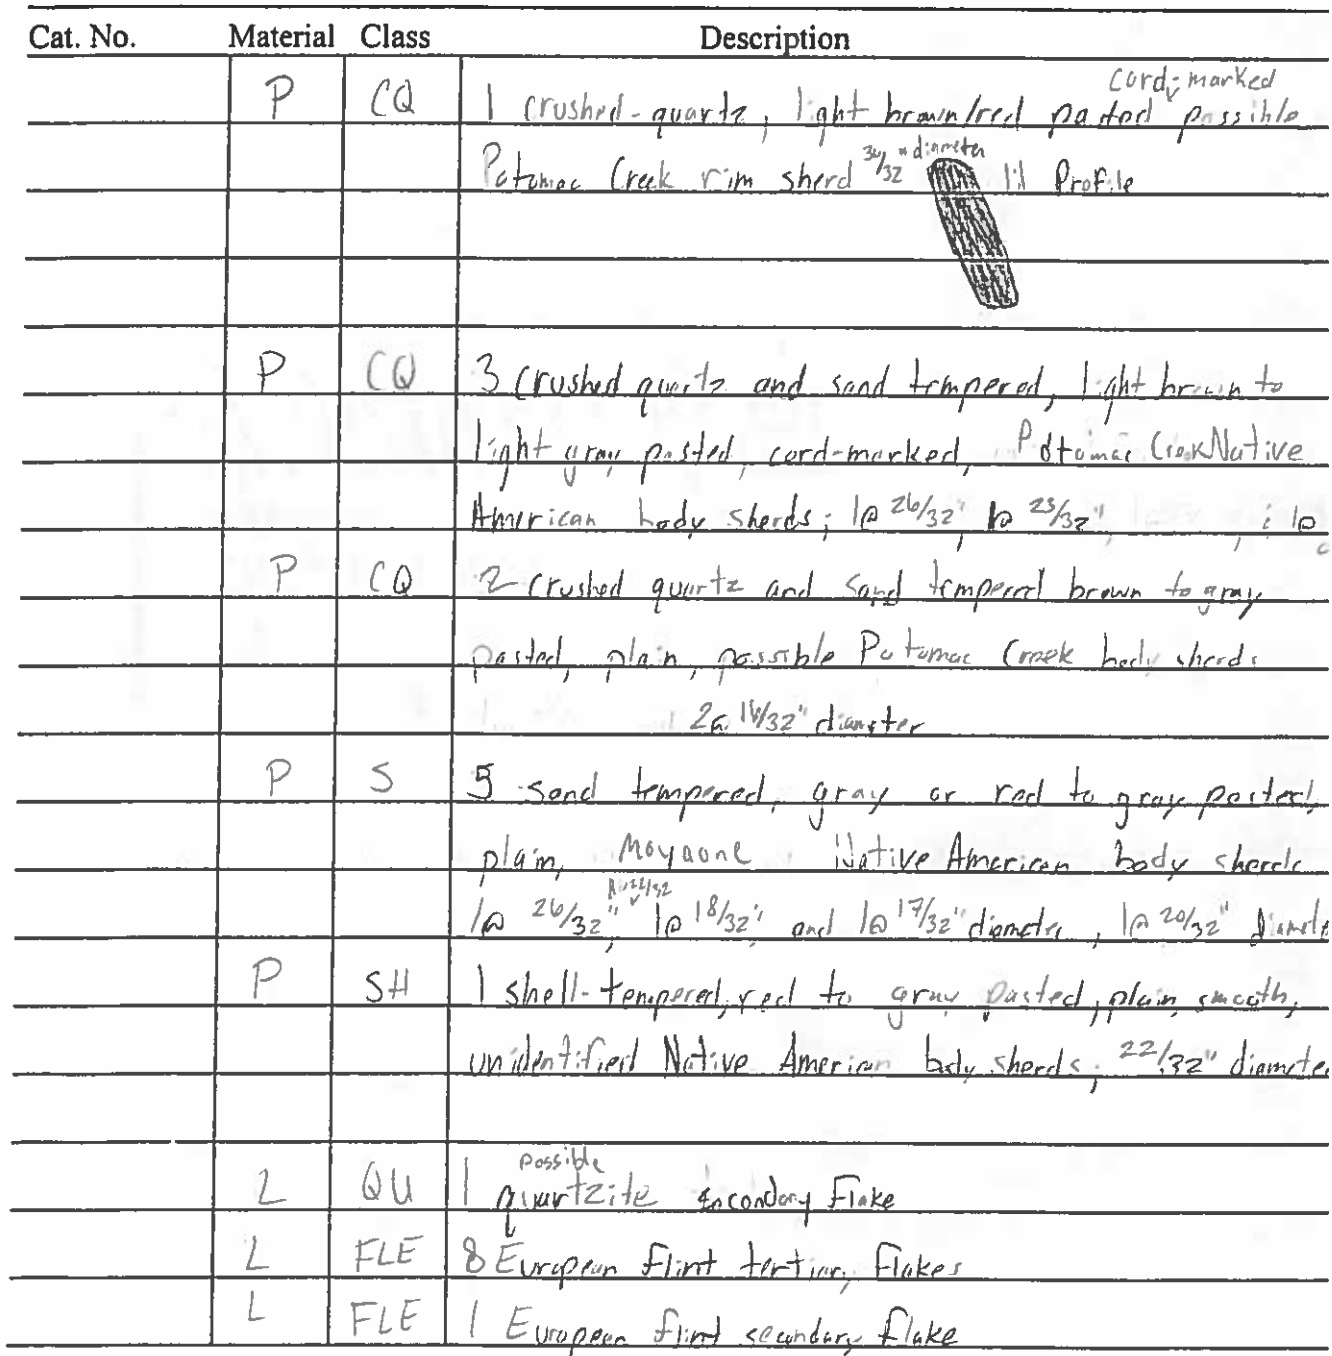 Cat. No. Material Class Description
cord-marked
P CQ 1 crushed-quartz, light brown/red pasted possible
Potomac Creek rim sherd /32" diameter 1:1 Profile
P CQ 3 crushed quartz and sand tempered, light brown to
light gray pasted, cord-marked, Potomac Creek Native
American body sherds; 1@ 26/32", 1@ 23/32", ; 1@
P CQ 2 crushed quartz and sand tempered brown to gray
pasted, plain, possible Potomac Creek body sherds
2@ 16/32" diameter
P S 5 sand tempered, gray or red to gray pasted,
plain, Moyaone Native American body sherds
1@ 26/32", 1@ 18/32", and 1@ 17/32" diameter, 1@ 20/32" diamete
P SH 1 shell-tempered, red to gray pasted, plain, smooth,
unidentified Native American body sherds; 22/32" diameter
possible
L QU 1 quartzite secondary Flake
L FLE 8 European flint tertiary Flakes
L FLE 1 European flint secondary flake